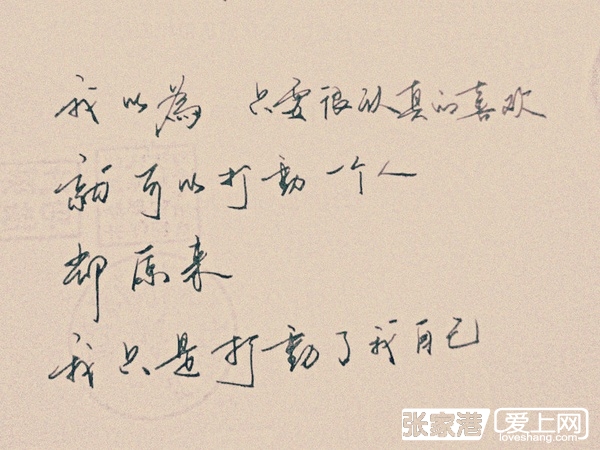 我以為 只要很认真的喜欢
就可以打動一个人
却原来
我只是打動了我自己
张家港 爱上网
loveshang.com